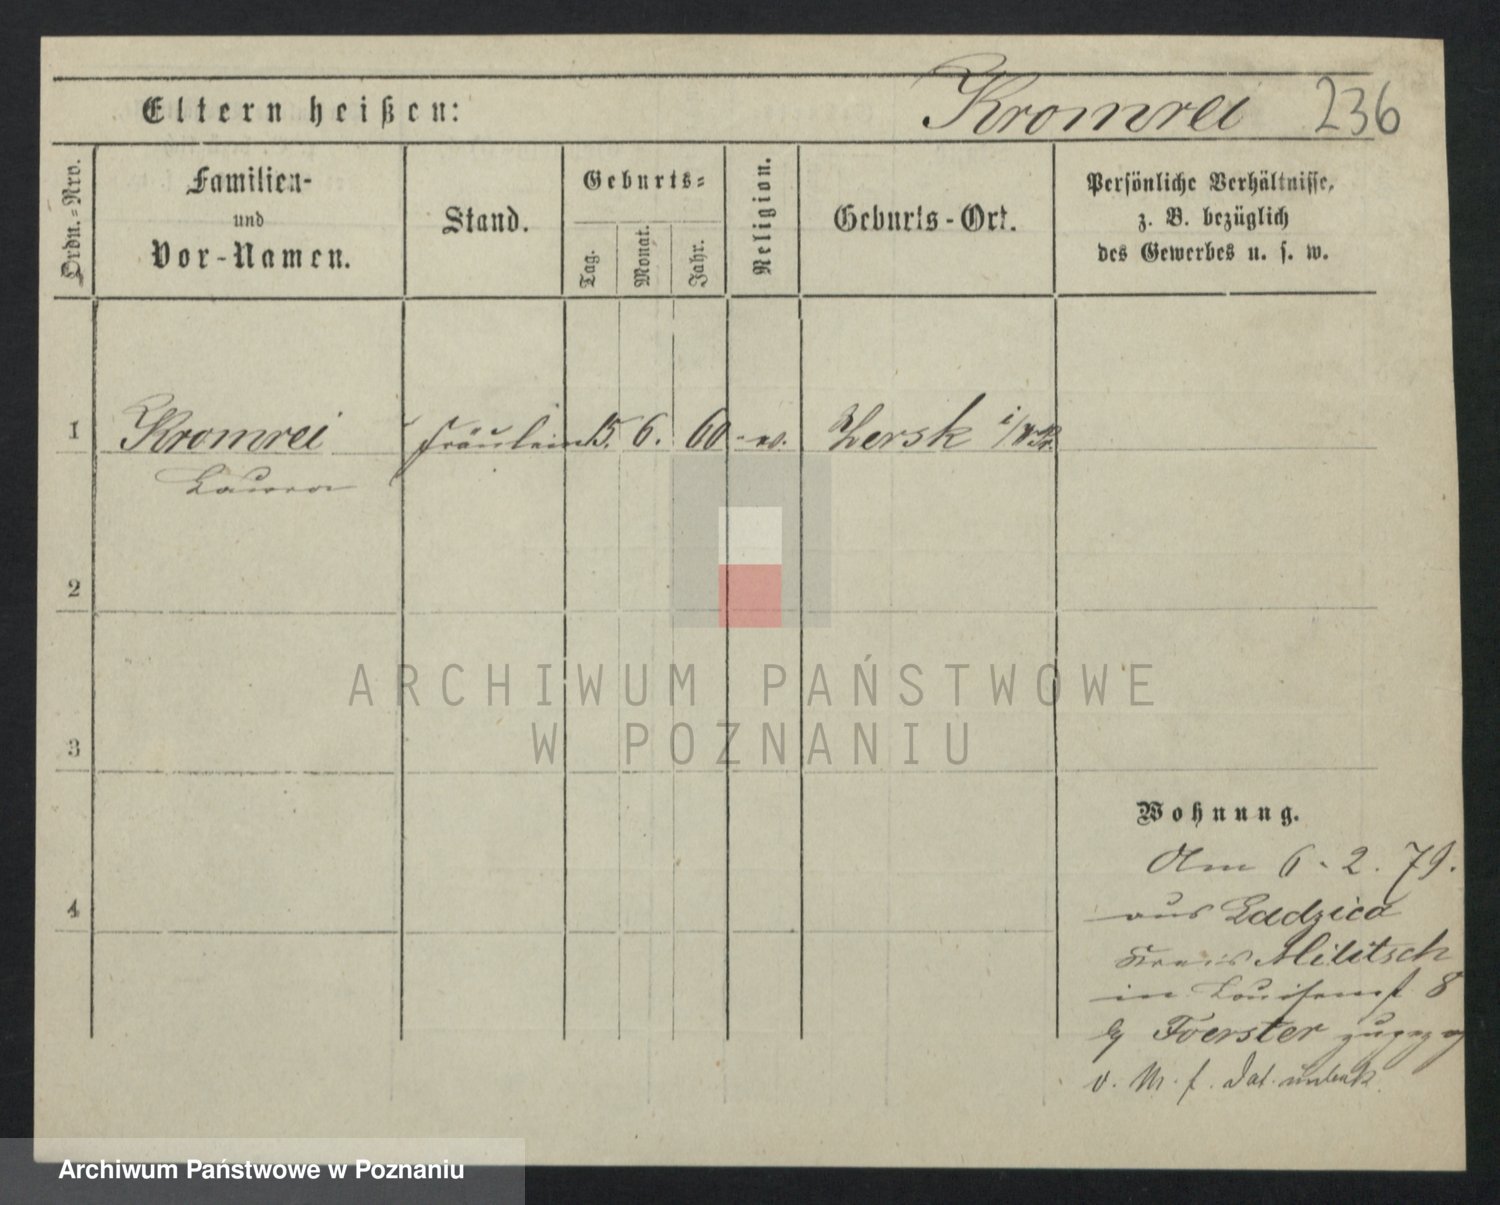 Kromrei 236
Eltern heißen:
Ordn.=Nro.
Familien-
und
Vor-Namen.
Stand.
Geburts=
Tag.
Monat.
Jahr.
Religion.
Geburts-Ort.
Persönliche Verhältnisse,
z. B. bezüglich
des Gewerbes u. s. w.
1 Kromrei Fräulein 15. 6. 60 ev. Zersk i/
Laura
2
3
4
Wohnung.
Am 6. 2. 79.
aus Ladzica
Kreis Militsch
in Louisenst 8
Foerster zugezog
v. M. f. dat. unbek
ARCHIWUM PAŃSTWOWE
W POZNANIU
Archiwum Państwowe w Poznaniu